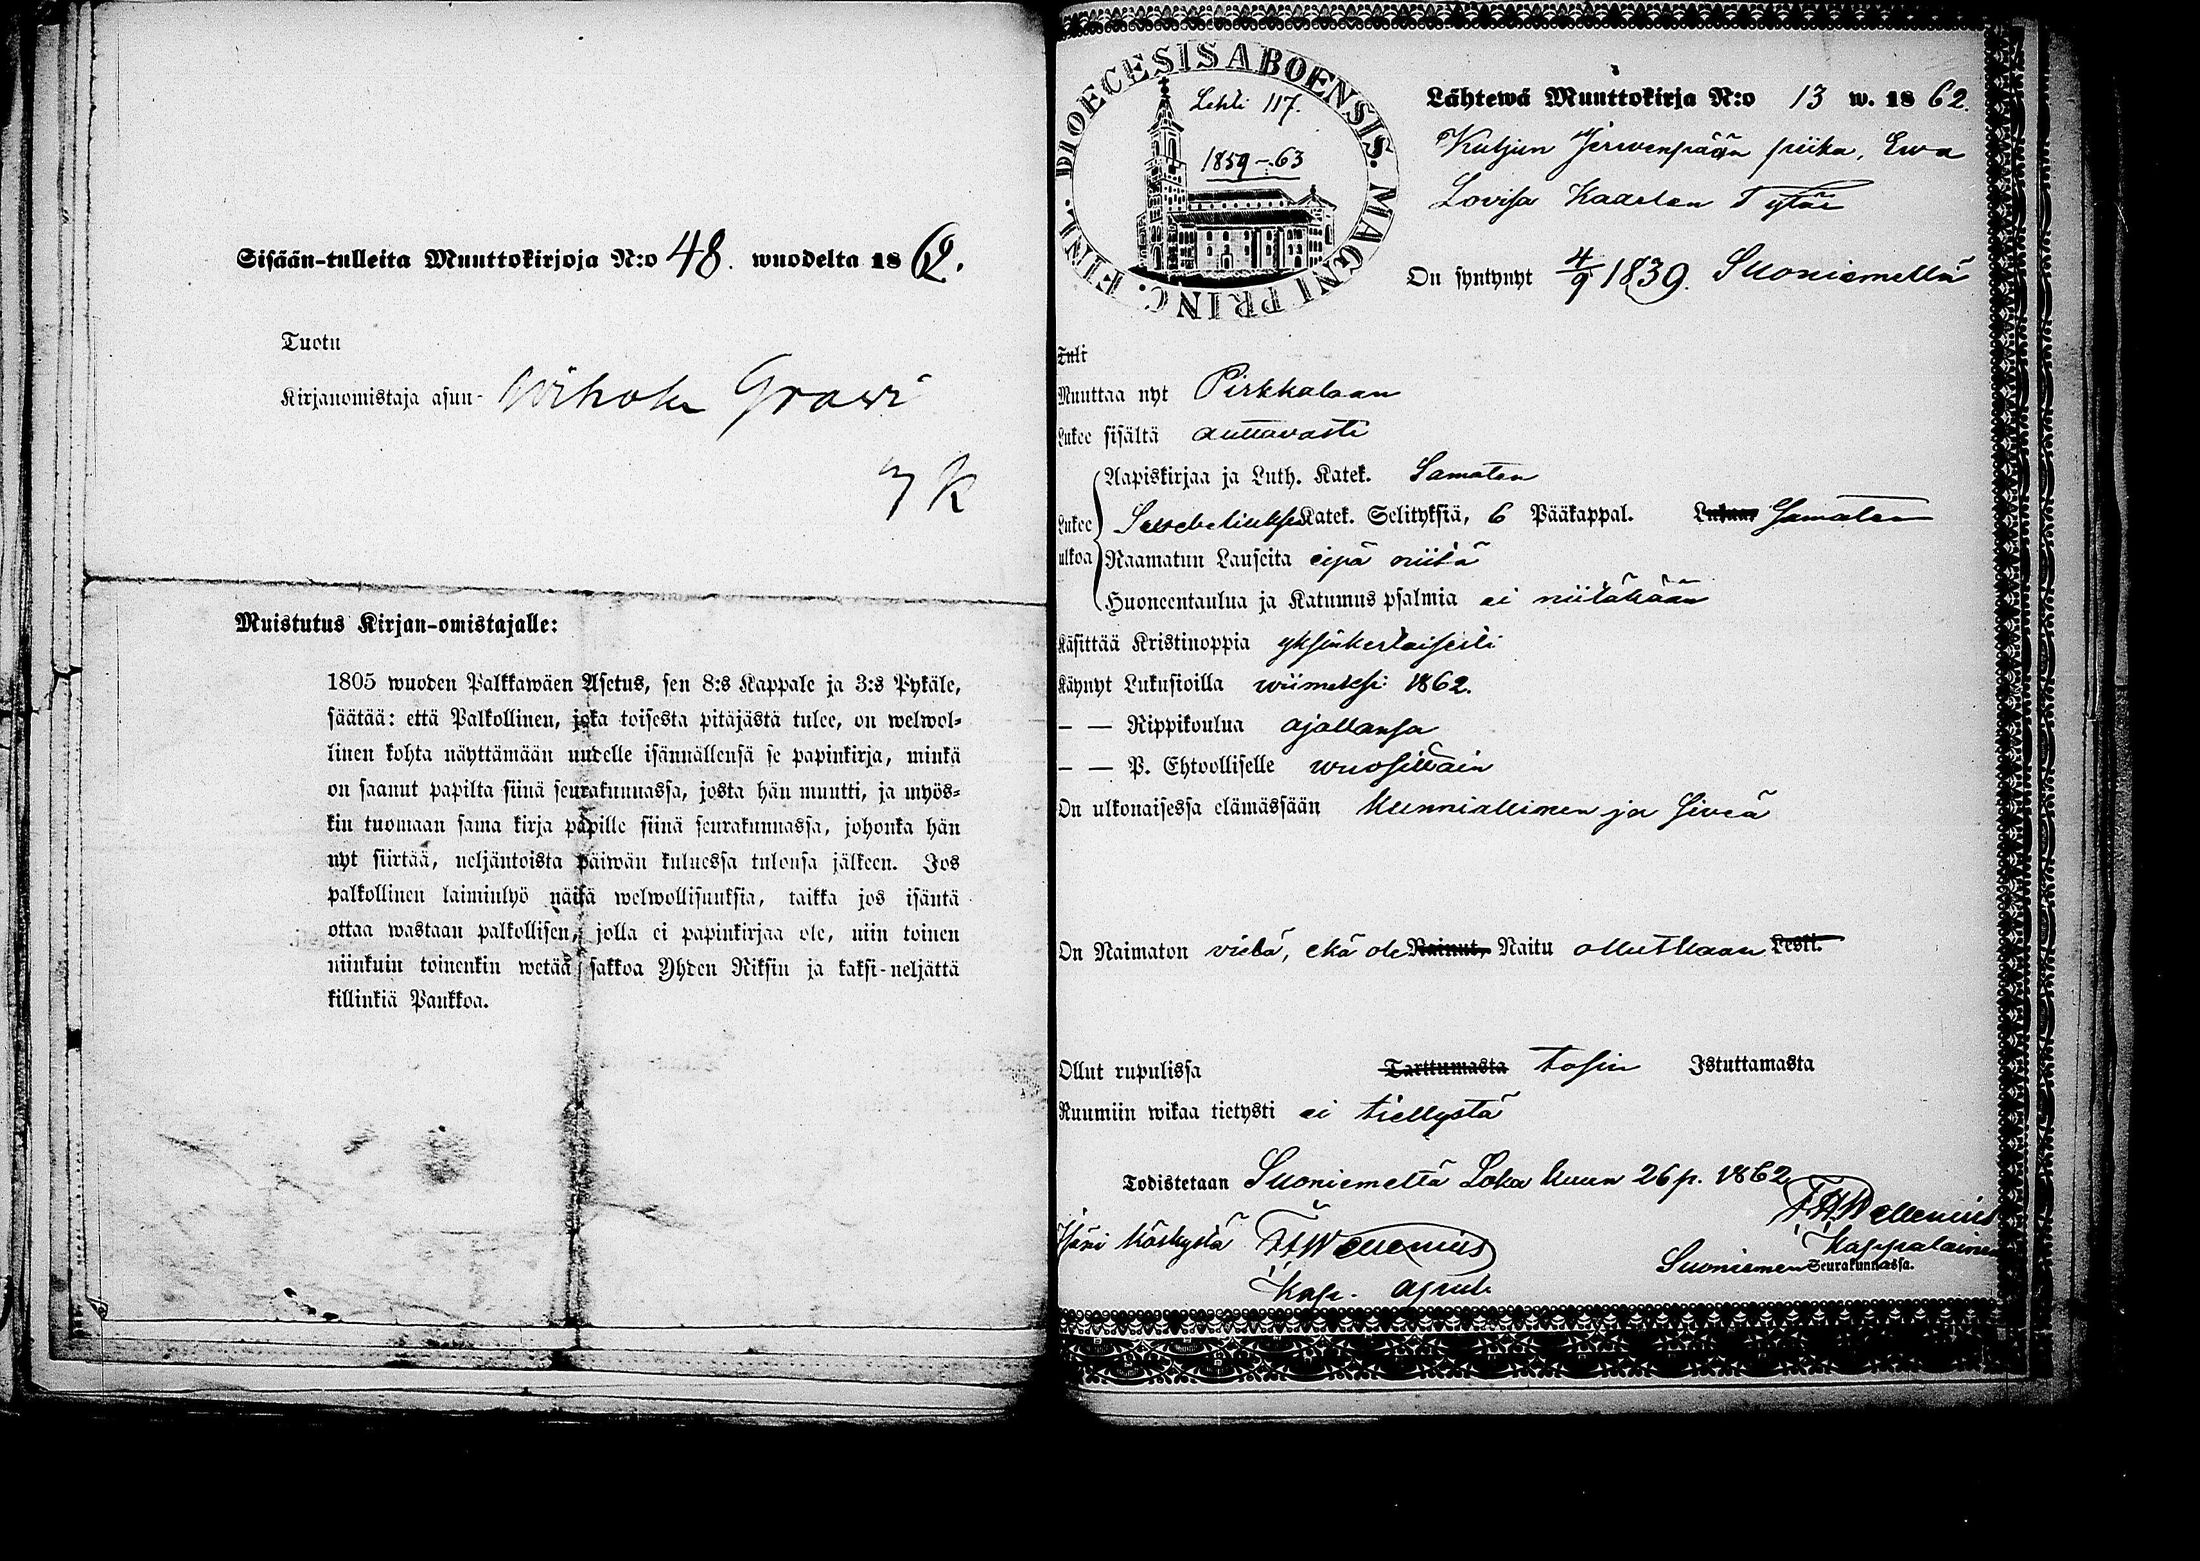 Sisään-tulleita Muuttokirjoja N:o 48. wuodelta 1862.
Tuotu
Kirjanomistaja asuu- Grawi
Muistutus Kirjan-omistajalle:
1805 wuoden Palkkawäen Asetus, sen 8:s Kappale ja 3:s Pykäle,
säätää: että Palkollinen, joka toisesta pitäjästä tulee, on welwol-
linen kohta näyttämään uudelle isännällensä se papinkirja, minkä
on saanut papilta siinä seurakunnassa, josta hän muutti, ja myös-
kin tuomaan sama kirja papille siinä seurakunnassa, johonka hän
nyt siirtää, neljäntoista päiwän kuluessa tulonsa jälkeen. Jos
palkollinen laiminlyö näitä welwollisuuksia, taikka jos isäntä
ottaa wastaan palkollisen, jolla ei papinkirjaa ole, niin toinen
niinkuin toinenkin wetää sakkoa Yhden Riksin ja kaksi-neljättä
killinkiä Pankkoa.
DIOECESIS ABOENSIS. MAGNI PRINC. FINL.
Lehti 117.
1859-63
Lähtewä Muuttokirja N:o 13 w. 1862.
Kuljun Jerwenpään piika, Ewa
Lovisa Kaarlen Tytär
On syntynyt 4/9 1839. Suoniemellä
Tuli
Muuttaa nyt Pirkkalaan
Lukee sisältä auttavasti
Aapiskirjaa ja Luth. Katek. Samaten
Lukee ulkoa Katek. Selityksiä, 6 Pääkappal. Samaten
Raamatun Lauseita eipä niitä
Huoneentaulua ja Katumus psalmia ei niitäkään
Käsittää Kristinoppia yksinkertaisesti
Käynyt Lukusioilla wiimeksi 1862.
— — Rippikoulua ajallansa
— — P. Ehtoolliselle wuosittain
On ulkonaisessa elämässään kunniallinen ja siveä
On Naimaton vielä, eikä ole Nainut, Naitu ollutkaan Leski.
Ollut rupulissa Tarttumasta tosin Istuttamasta
Ruumiin wikaa tietysti ei tiettystä
Todistetaan Suoniemellä Loka kuun 26 p. 1862
F. H. Wellenius
Kappalainen
Suoniemen Seurakunnassa.
käskystä F. H. Wellenius
Kap.